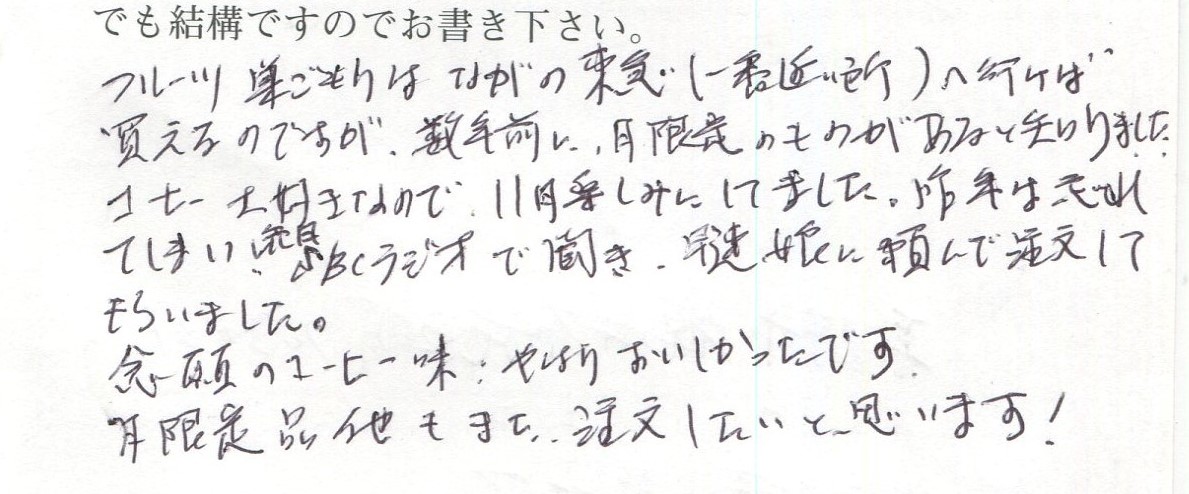 でも結構ですのでお書き下さい。
フルーツ巣ごもりは ながの東急(一番近い所)へ行けば
買えるのですが、数年前に、月限定のものがあると知りました
コーヒー大好きなので、11月楽しみにしてました。昨年は忘れ
てしまい、先日SBCラジオで聞き、早速娘に頼んで注文して
もらいました。
念願のコーヒー味:やはりおいしかったです
月限定品他もまた、注文したいと思います!